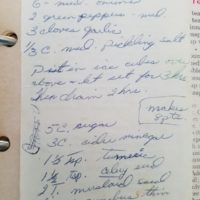 6 - med. onions
2 green peppers - med.
3 cloves garlic
1/3 C. med. Pickling salt
Put in ice cubes over
above & let set for 3 hrs
then drain 2 hrs.
makes
8 pts
5 C. sugar
3 C. cider vinegar
1 1/2 tsp. tumeric
1 1/2 tsp. celery seed
2 T. mustard seed
thin